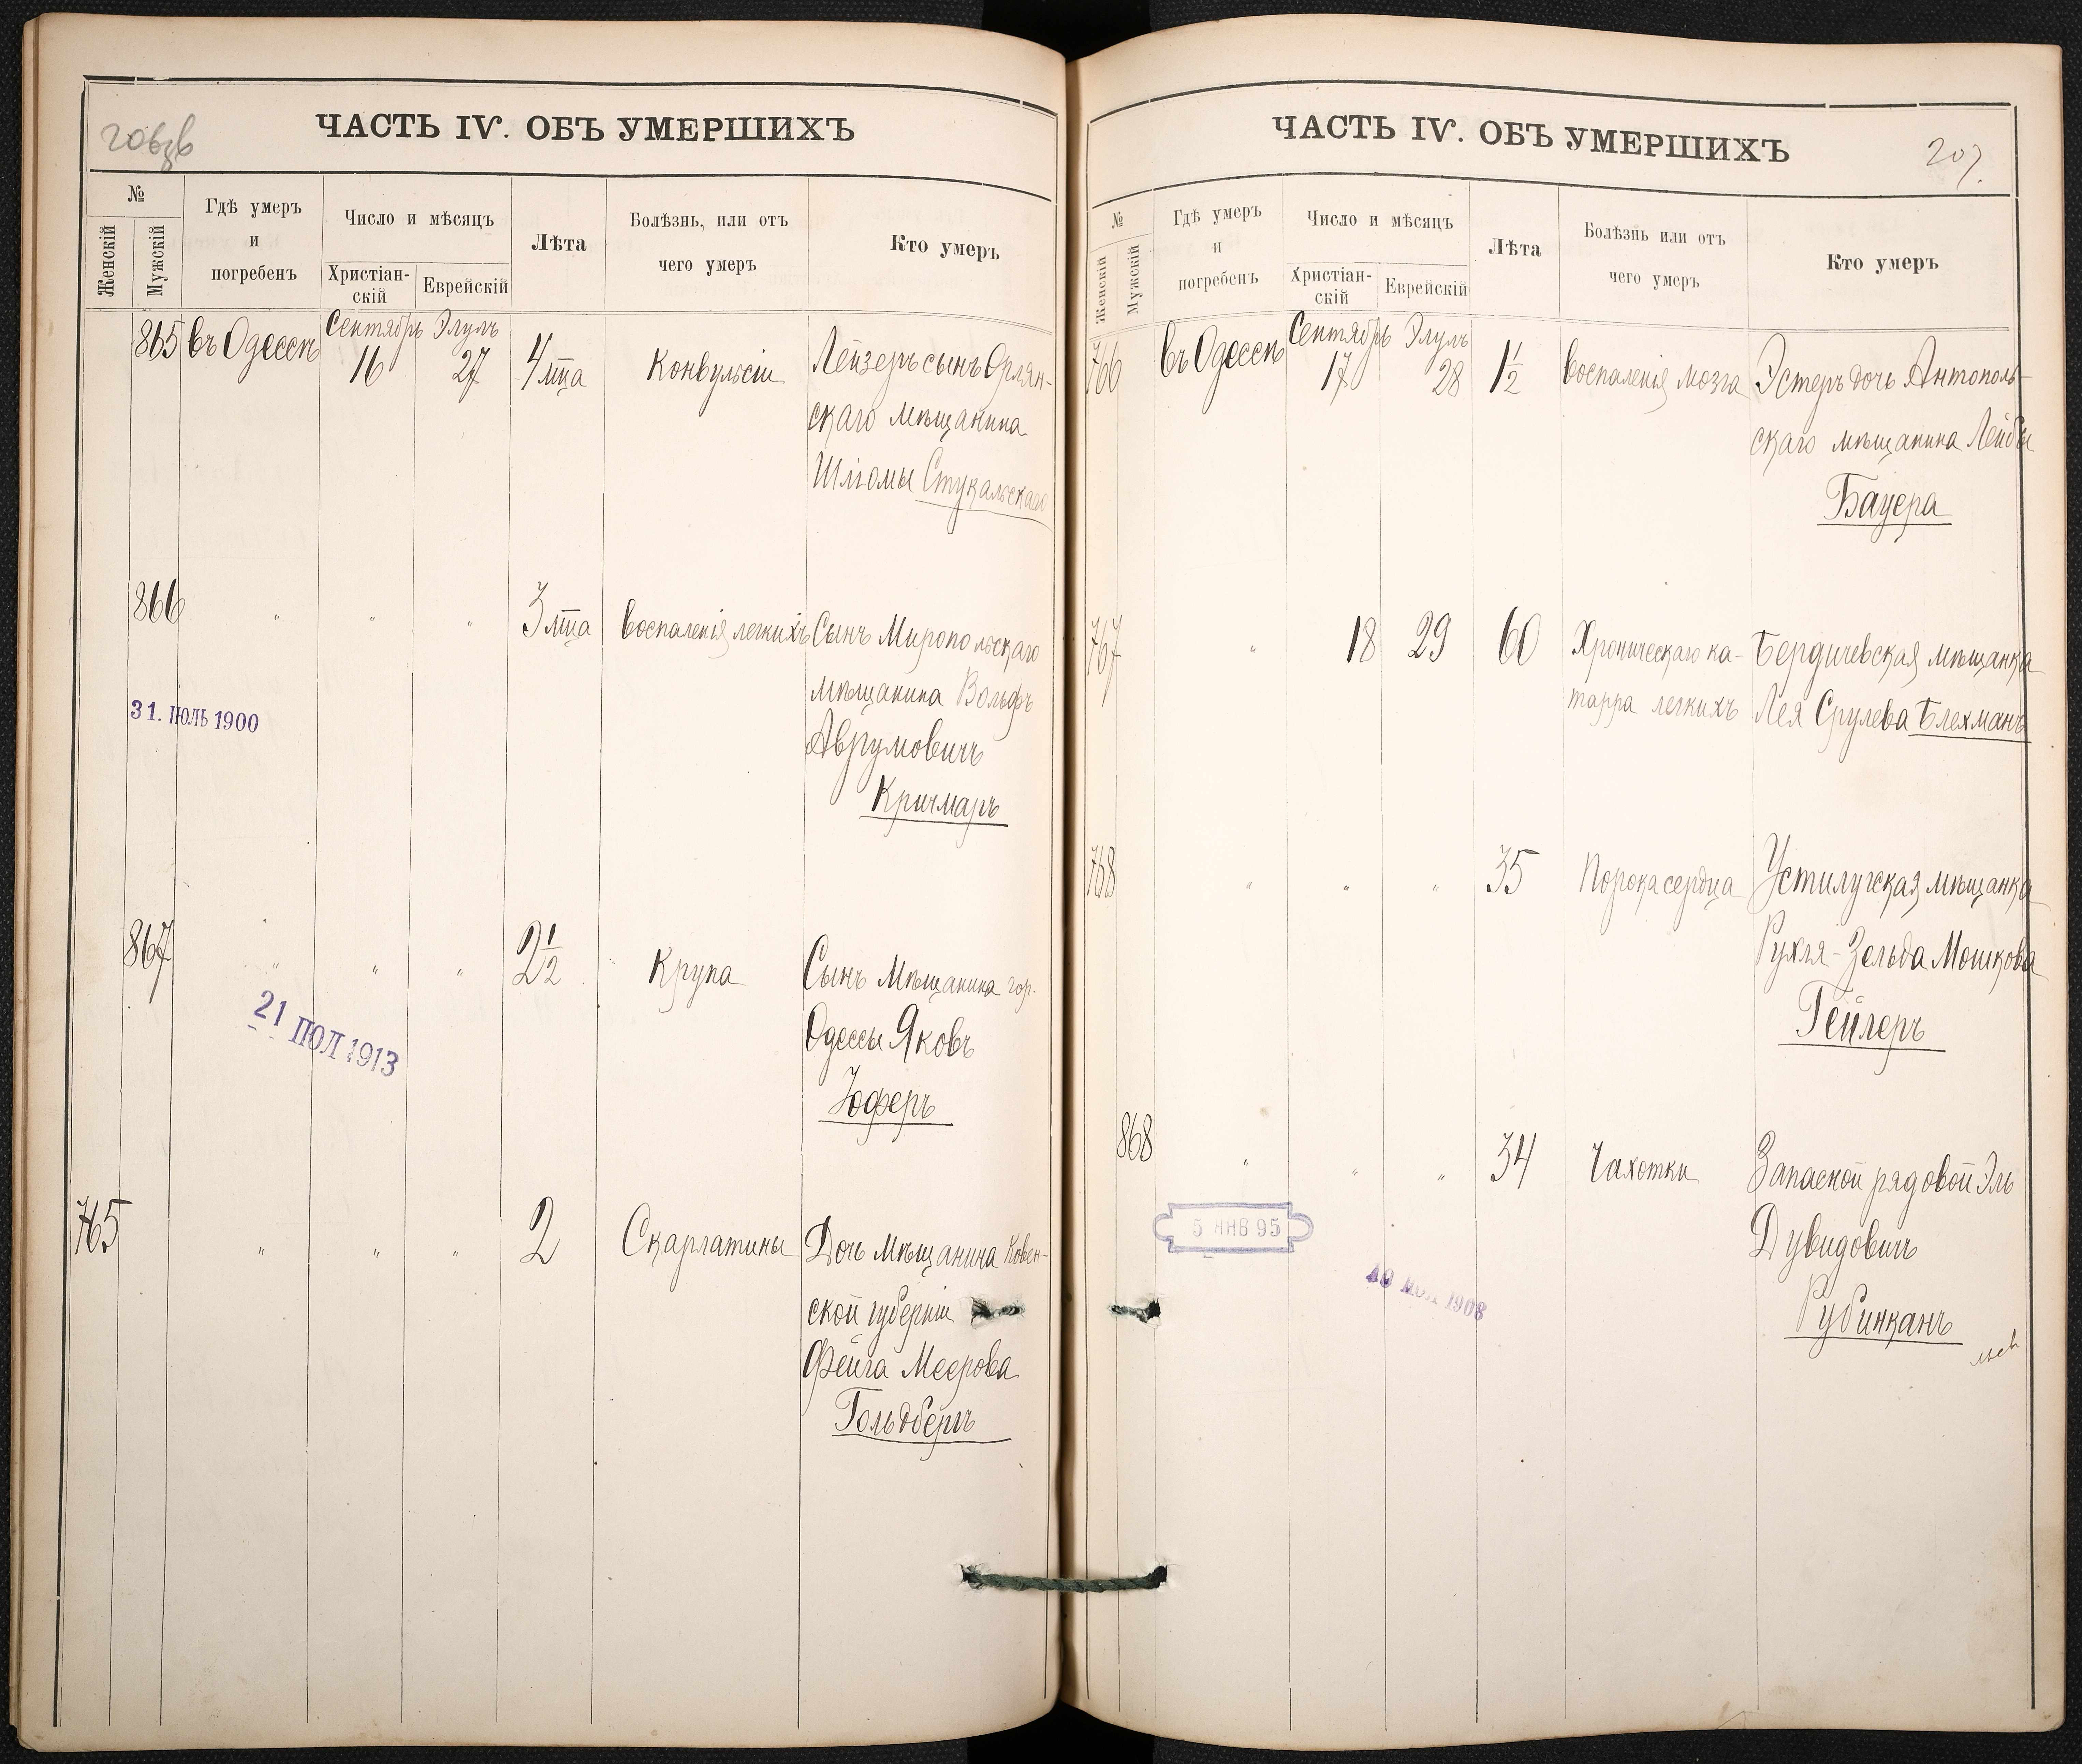 206об
ЧАСТЬ IV. ОБЪ УМЕРШИХЪ
№
Женскій
Мужскій
Гдѣ умеръ
и
погребенъ
Число и мѣсяцъ
Христіан-
скій
Еврейскій
Лѣта
Болѣзнь, или отъ
чего умеръ
Кто умеръ
865 въ Одессѣ Сентябрь 16 Элулъ 27 4 мца Конвульсіи Лейзеръ сынъ Орлян-
скаго мѣщанина
Шліомы Стукальскаго
866 " " " 3 мца воспаленія легкихъ Сынъ Миропольскаго
мѣщанина Вольфъ
Аврумовичъ
Кричмаръ
31. ІЮЛЬ 1900
867 " " " 2 1/2 Крупа Сынъ Мѣщанина гор.
Одессы Яковъ
Юферъ
21 ІЮЛ 1913
765 " " " 2 Скарлатины Дочь Мѣщанина Ковен-
ской губерніи
Фейга Меерова
Гольдбергъ
ЧАСТЬ IV. ОБЪ УМЕРШИХЪ
207.
№
Женскій
Мужскій
Гдѣ умеръ
и
погребенъ
Число и мѣсяцъ
Христіан-
скій
Еврейскій
Лѣта
Болѣзнь или отъ
чего умеръ
Кто умеръ
766 въ Одессѣ Сентябрь 17 Элулъ 28 1 1/2 воспаленія мозга Эстеръ дочь Антополь-
скаго мѣщанина Лейбы
Бауера
767 " 18 29 60 Хроническаго ка- Бердичевская мѣщанка
тарра легкихъ Лея Срулева Блехманъ
768 " " " 35 Порока сердца Устилугская мѣщанка
Рухля-Зельда Мошкова
Гейлеръ
868 " " " 34 Чахотки Запасной рядовой Эль
Дувидовичъ
Рубинканъ
5 ЯНВ 95
1908